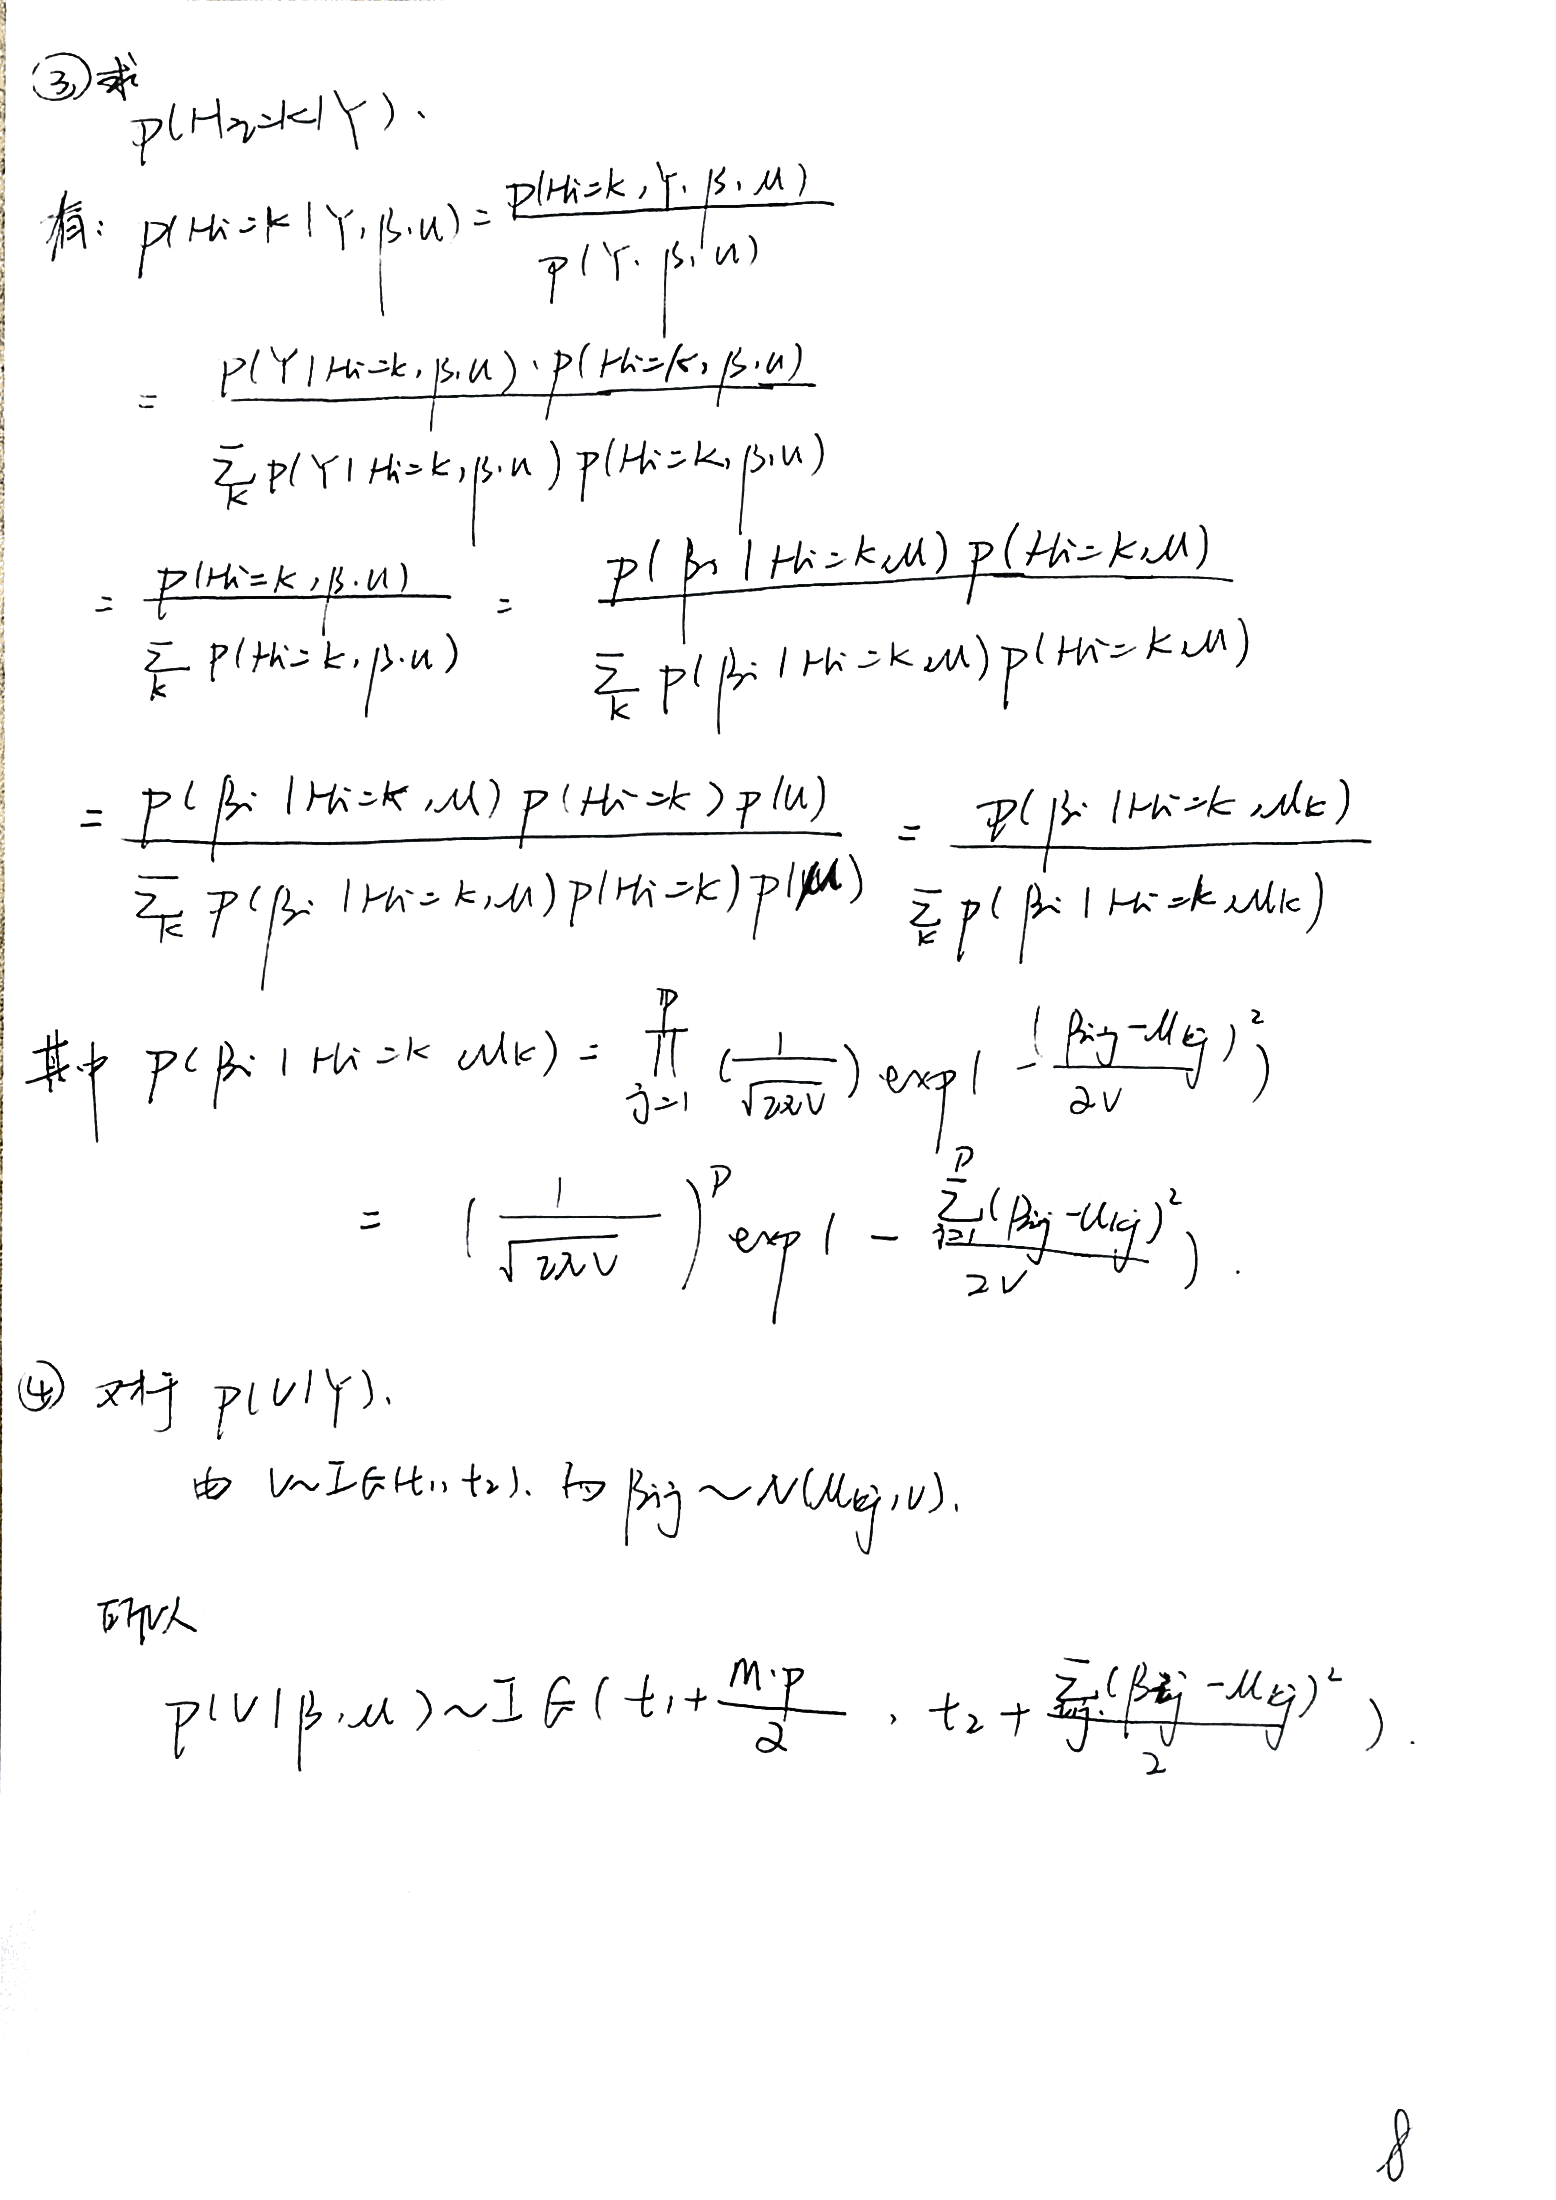 ③ 求
P(Hi=k|Y).
有: P(Hi=k|Y,β,μ) = P(Hi=k,Y,β,μ) / P(Y,β,μ)
= P(Y|Hi=k,β,μ)·P(Hi=k,β,μ) / Σ_k P(Y|Hi=k,β,μ) P(Hi=k,β,μ)
= P(Hi=k,β,μ) / Σ_k P(Hi=k,β,μ) = P(βi|Hi=k,μ) P(Hi=k,μ) / Σ_k P(βi|Hi=k,μ) P(Hi=k,μ)
= P(βi|Hi=k,μ) P(Hi=k) P(μ) / Σ_k P(βi|Hi=k,μ) P(Hi=k) P(μ) = P(βi|Hi=k,μk) / Σ_k P(βi|Hi=k,μk)
其中 P(βi|Hi=k,μk) = ∏_{j=1}^{P} (1/√(2πV)) exp(-(βij-μkj)²/2V)
= (1/√(2πV))^P exp(-Σ_{j=1}^{P}(βij-μkj)²/2V).
④ 对于 P(V|Y).
由 V~IG(t1,t2). 而 βij ~ N(μkj,V).
所以
P(V|β,μ) ~ IG(t1 + m·p/2, t2 + Σ_{i,j}(βij-μkj)²/2).
8